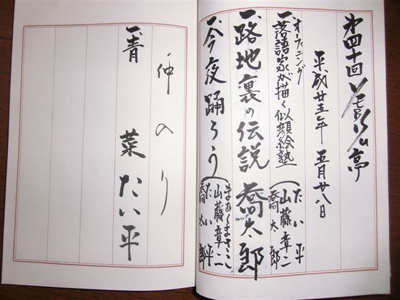 第四十回 亭
平成廿五年 五月廿八日
オープニング
一、落語家が描く似顔絵塾
たい平
山藤章二
喬太郎
一、路地裏の伝説 喬太郎
一、今夜踊ろう
山藤章二
たい平
喬太郎
仲入り
一、青菜 たい平